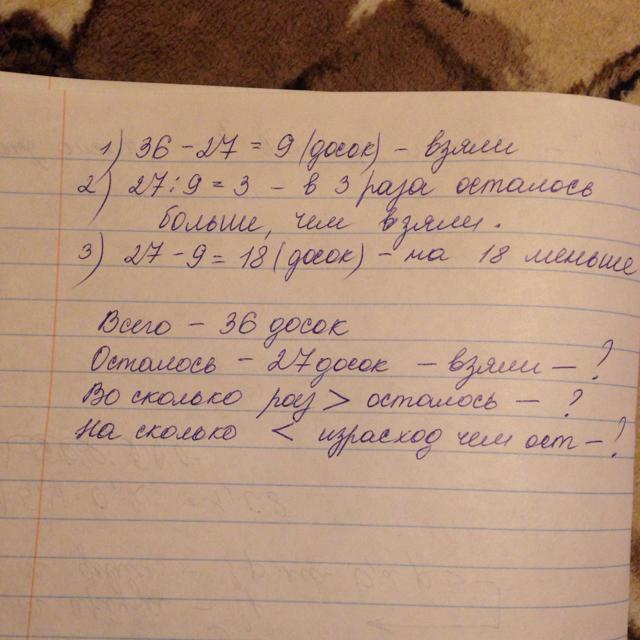 1) 36 - 27 = 9 (досок) - взяли
2) 27 : 9 = 3 - в 3 раза осталось
больше, чем взяли.
3) 27 - 9 = 18 (досок) - на 18 меньше
Всего - 36 досок
Осталось - 27 досок - взяли - ?
Во сколько раз > осталось - ?
На сколько < израсход чем ост - ?